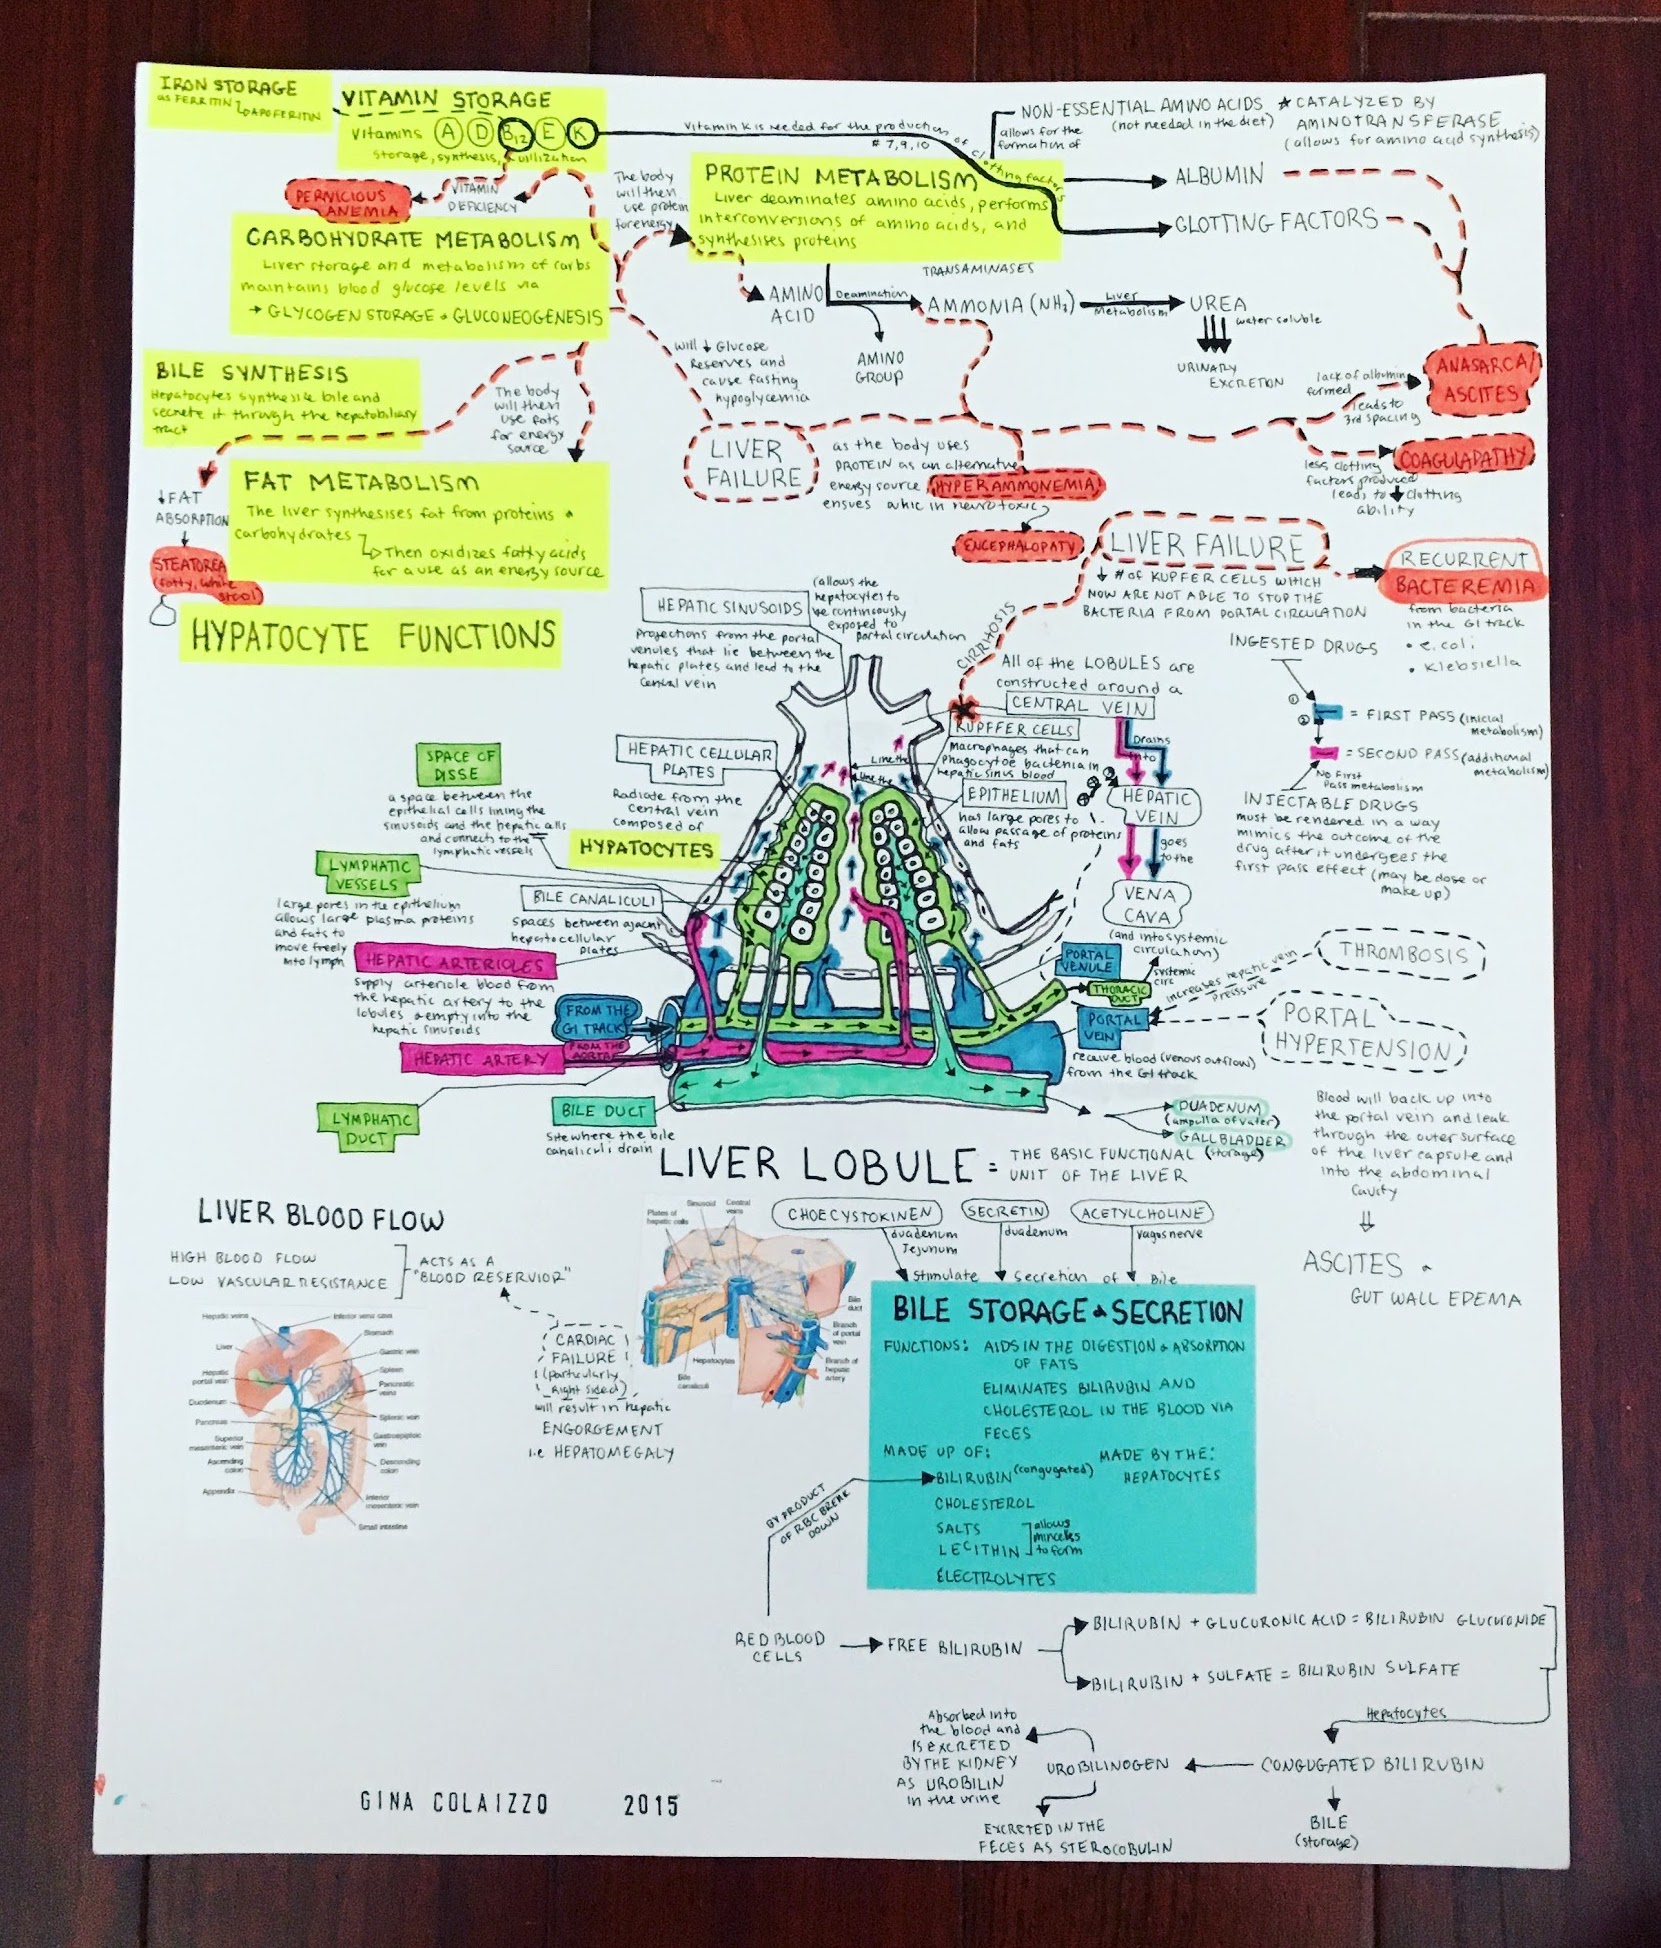 IRON STORAGE
as FERRITIN
APOFERITIN
VITAMIN STORAGE
Vitamins A D B12 E K
storage, synthesis, + utilization
PERNICIOUS
ANEMIA
VITAMIN
DEFICIENCY
Vitamin K is needed for the production of clotting factors
# 7, 9, 10
NON-ESSENTIAL AMINO ACIDS
(not needed in the diet)
allows for the
formation of
CATALYZED BY
AMINOTRANSFERASE
(allows for amino acid synthesis)
PROTEIN METABOLISM
Liver deaminates amino acids, performs
interconversions of amino acids, and
synthesises proteins
ALBUMIN
CLOTTING FACTORS
TRANSAMINASES
The body
will then
use protein
for energy
CARBOHYDRATE METABOLISM
Liver storage and metabolism of carbs
maintains blood glucose levels via
→ GLYCOGEN STORAGE + GLUCONEOGENESIS
AMINO
ACID
Deamination
AMMONIA (NH3)
Liver
Metabolism
UREA
water soluble
URINARY
EXCRETION
AMINO
GROUP
BILE SYNTHESIS
Hepatocytes synthesise bile and
secrete it through the hepatobiliary
tract
The body
will then
use fats
for energy
source
will ↓ Glucose
Reserves and
cause fasting
hypoglycemia
ANASARCA/
ASCITES
lack of albumin
formed
leads to
3rd spacing
LIVER
FAILURE
as the body uses
PROTEIN as an alternative
energy source, HYPERAMMONEMIA
ensues which is neurotoxic
ENCEPHALOPATY
COAGULAPATHY
less clotting
factors produced
leads to ↓ clotting
ability
↓ FAT
ABSORPTION
STEATOREA
(fatty, white
stool)
FAT METABOLISM
The liver synthesises fat from proteins +
carbohydrates
Then oxidizes fatty acids
for a use as an energy source
HYPATOCYTE FUNCTIONS
CIRRHOSIS
LIVER FAILURE
↓ # of KUPFER CELLS WHICH
NOW ARE NOT ABLE TO STOP THE
BACTERIA FROM PORTAL CIRCULATION
RECURRENT
BACTEREMIA
from bacteria
in the GI track
• e.coli
• Klebsiella
HEPATIC SINUSOIDS
(allows the
hepatocytes to
be continuously
exposed to
portal circulation
Projections from the portal
venules that lie between the
hepatic plates and lead to the
central vein
All of the LOBULES are
constructed around a
CENTRAL VEIN
Drains
into
HEPATIC
VEIN
goes
to the
VENA
CAVA
(and into systemic
circulation)
KUPFFER CELLS
Macrophages that can
phagocytoe bactenia in
hepatic sinus blood
Line the
Line the
EPITHELIUM
has large pores to
allow passage of proteins
and fats
INGESTED DRUGS
①
②
= FIRST PASS (inicial
metabolism)
= SECOND PASS (additional
metabolism)
No First
Pass metabolism
INJECTABLE DRUGS
must be rendered in a way
mimics the outcome of the
drug after it undergoes the
first pass effect (may be dose or
make up)
HEPATIC CELLULAR
PLATES
Radiate from the
central vein
composed of
HYPATOCYTES
SPACE OF
DISSE
a space between the
epithelial cells lining the
sinusoids and the hepatic cells
and connects to the
lymphatic vessels
LYMPHATIC
VESSELS
large pores in the epithelium
allows large plasma proteins
and fats to
move freely
into lymph
BILE CANALICULI
Spaces between ajacent
hepatocellular
plates
HEPATIC ARTERIOLES
supply arteriole blood from
the hepatic artery to the
lobules + empty into the
hepatic sinusoids
FROM THE
GI TRACK
FROM THE
AORTA
HEPATIC ARTERY
LYMPHATIC
DUCT
BILE DUCT
Site where the bile
canaliculi drain
PORTAL
VENULE
THORACIC
DUCT
systemic
circ
PORTAL
VEIN
receive blood (venous outflow)
from the GI track
increases hepatic vein
pressure
THROMBOSIS
PORTAL
HYPERTENSION
Blood will back up into
the portal vein and leak
through the outer surface
of the liver capsule and
into the abdominal
cavity
ASCITES +
GUT WALL EDEMA
DUADENUM
(ampulla of vater)
GALLBLADDER
(storage)
LIVER LOBULE = THE BASIC FUNCTIONAL
UNIT OF THE LIVER
LIVER BLOOD FLOW
HIGH BLOOD FLOW
LOW VASCULAR RESISTANCE
ACTS AS A
"BLOOD RESERVIOR"
CARDIAC
FAILURE
(particularly
Right sided)
will result in hepatic
ENGORGEMENT
i.e HEPATOMEGALY
Hepatic veins
Inferior vena cava
Liver
Stomach
Gastric vein
Hepatic
portal vein
Spleen
Pancreatic
veins
Duodenum
Splenic vein
Pancreas
Gastroepiploic
vein
Superior
mesenteric vein
Ascending
colon
Descending
colon
Appendix
Inferior
mesenteric vein
Small intestine
Plates of
hepatic cells
Sinusoid
Central
veins
Bile
duct
Branch
of portal
vein
Branch of
hepatic
artery
Hepatocytes
Bile
canaliculi
CHOECYSTOKINEN
duadenum
Jejunum
SECRETIN
duadenum
ACETYLCHOLINE
vagos nerve
Stimulate secretion of Bile
BILE STORAGE + SECRETION
FUNCTIONS: AIDS IN THE DIGESTION + ABSORPTION
OF FATS
ELIMINATES BILIRUBIN AND
CHOLESTEROL IN THE BLOOD VIA
FECES
MADE UP OF:
BILIRUBIN (congugated)
CHOLESTEROL
SALTS
LECITHIN
allows
mincelles
to form
ELECTROLYTES
MADE BY THE:
HEPATOCYTES
BY PRODUCT
OF RBC BREAK
DOWN
RED BLOOD
CELLS
FREE BILIRUBIN
BILIRUBIN + GLUCURONIC ACID = BILIRUBIN GLUCURONIDE
BILIRUBIN + SULFATE = BILIRUBIN SULFATE
Hepatocytes
CONGUGATED BILIRUBIN
BILE
(storage)
UROBILINOGEN
Absorbed into
the blood and
is EXCRETED
BY THE KIDNEY
AS UROBILIN
in the urine
EXCRETED IN THE
FECES AS STEROCOBULIN
GINA COLAIZZO 2015